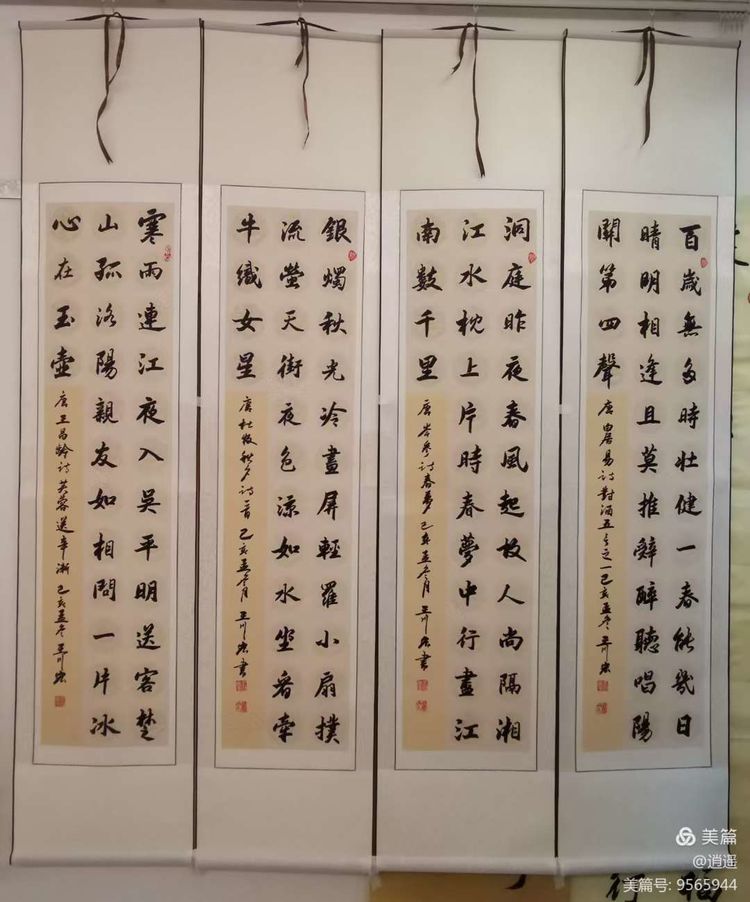 百歲無多時壯健一春能幾日
晴明相逢且莫推辭醉聽唱陽
關第四聲
唐白居易诗對酒五之一己亥孟冬
洞庭昨夜春風起故人尚隔湘
江水枕上片時春夢中行盡江
南數千里
唐岑參诗春夢己亥孟冬月書
銀燭秋光冷畫屏輕羅小扇撲
流螢天街夜色涼如水坐看牽
牛織女星
唐杜牧秋夕诗一首己亥孟冬月書
寒雨連江夜入吳平明送客楚
山孤洛陽親友如相問一片冰
心在玉壺
唐王昌龄诗芙蓉送辛漸己亥孟冬
美篇
@逍遥
美篇号: 9565944